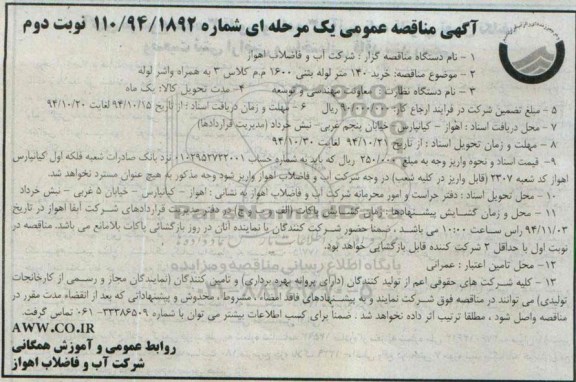 آگهی مناقصه عمومی یک مرحله ای شماره ۱۱۰/۹۴/۱۸۹۲ نوبت دوم
۱ - نام دستگاه مناقصه گزار : شرکت آب و فاضلاب اهواز
۲ - موضوع مناقصه: خرید ۱۴۰ متر لوله بتنی ۱۶۰۰ م.م کلاس ۳ به همراه واشر لوله
۳ - نام دستگاه نظارت : معاونت مهندسی و توسعه ۴- مدت تحویل کالا: یک ماه
۵ - مبلغ تضمین شرکت در فرایند ارجاع کار: ریال ۶ - مهلت و زمان دریافت اسناد : از تاریخ ۹۴/۱۰/۱۵ لغایت ۹۴/۱۰/۲۰
۷ - محل دریافت اسناد : اهواز - کیانپارس - خیابان پنجم غربی- نبش خرداد (مدیریت قراردادها)
۸ - مهلت و زمان تحویل اسناد : از تاریخ ۹۴/۱۰/۲۱ لغایت ۹۴/۱۰/۳۰
۹- قیمت اسناد و نحوه واریز وجه به مبلغ ۲۵۰/۰۰۰ ریال که باید به شماره حساب ۰۱۰۲۹۵۲۷۲۳۰۰۱ نزد بانک صادرات شعبه فلکه اول کیانپارس
اهواز کد شعبه ۲۳۰۷ (قابل واریز در کلیه شعب) در وجه شرکت آب و فاضلاب اهواز واریز شود وجه مذکور به هیچ عنوان مسترد نخواهد شد.
۱۰- محل تحویل اسناد : دفتر حراست و امور محرمانه شرکت آب و فاضلاب اهواز به نشانی : اهواز - کیانپارس - خیابان ۵ غربی - نبش خرداد
۱۱ - محل و زمان گشایش پیشنهادها: زمان گشایش پاکات در دفتر مدیریت قراردادهای شرکت آبفا اهواز در تاریخ
۹۴/۱۱/۰۳ راس ساعت ۱۰:۰۰ می باشد . ضمنا حضور شرکت کنندگان یا نماینده آنان در روز بازگشائی پاکات بلامانع می باشد. مناقصه در
نوبت اول با حداقل ۳ شرکت کننده قابل بازگشایی خواهد بود.
۱۲- محل تامین اعتبار : عمرانی
۱۳ - کلیه شرکت های حقوقی اعم از تولید کنندگان (دارای پروانه بهره برداری) و تامین کنندگان (نمایندگان مجاز و رسمی از کارخانجات
تولیدی) می توانند در مناقصه فوق شرکت نمایند و به پیشنهادهای فاقد امضاء، مشروط، مخدوش و پیشنهاداتی که بعد از انقضاء مدت مقرر در
مناقصه واصل شود ، مطلقا ترتیب اثر داده نخواهد شد . ضمنا برای کسب اطلاعات بیشتر می توان با شماره ۳۳۳۸۶۵۰۹- ۰۶۱ تماس گرفت.
AWW.CO.IR
روابط عمومی و آموزش همگانی
شرکت آب و فاضلاب اهواز